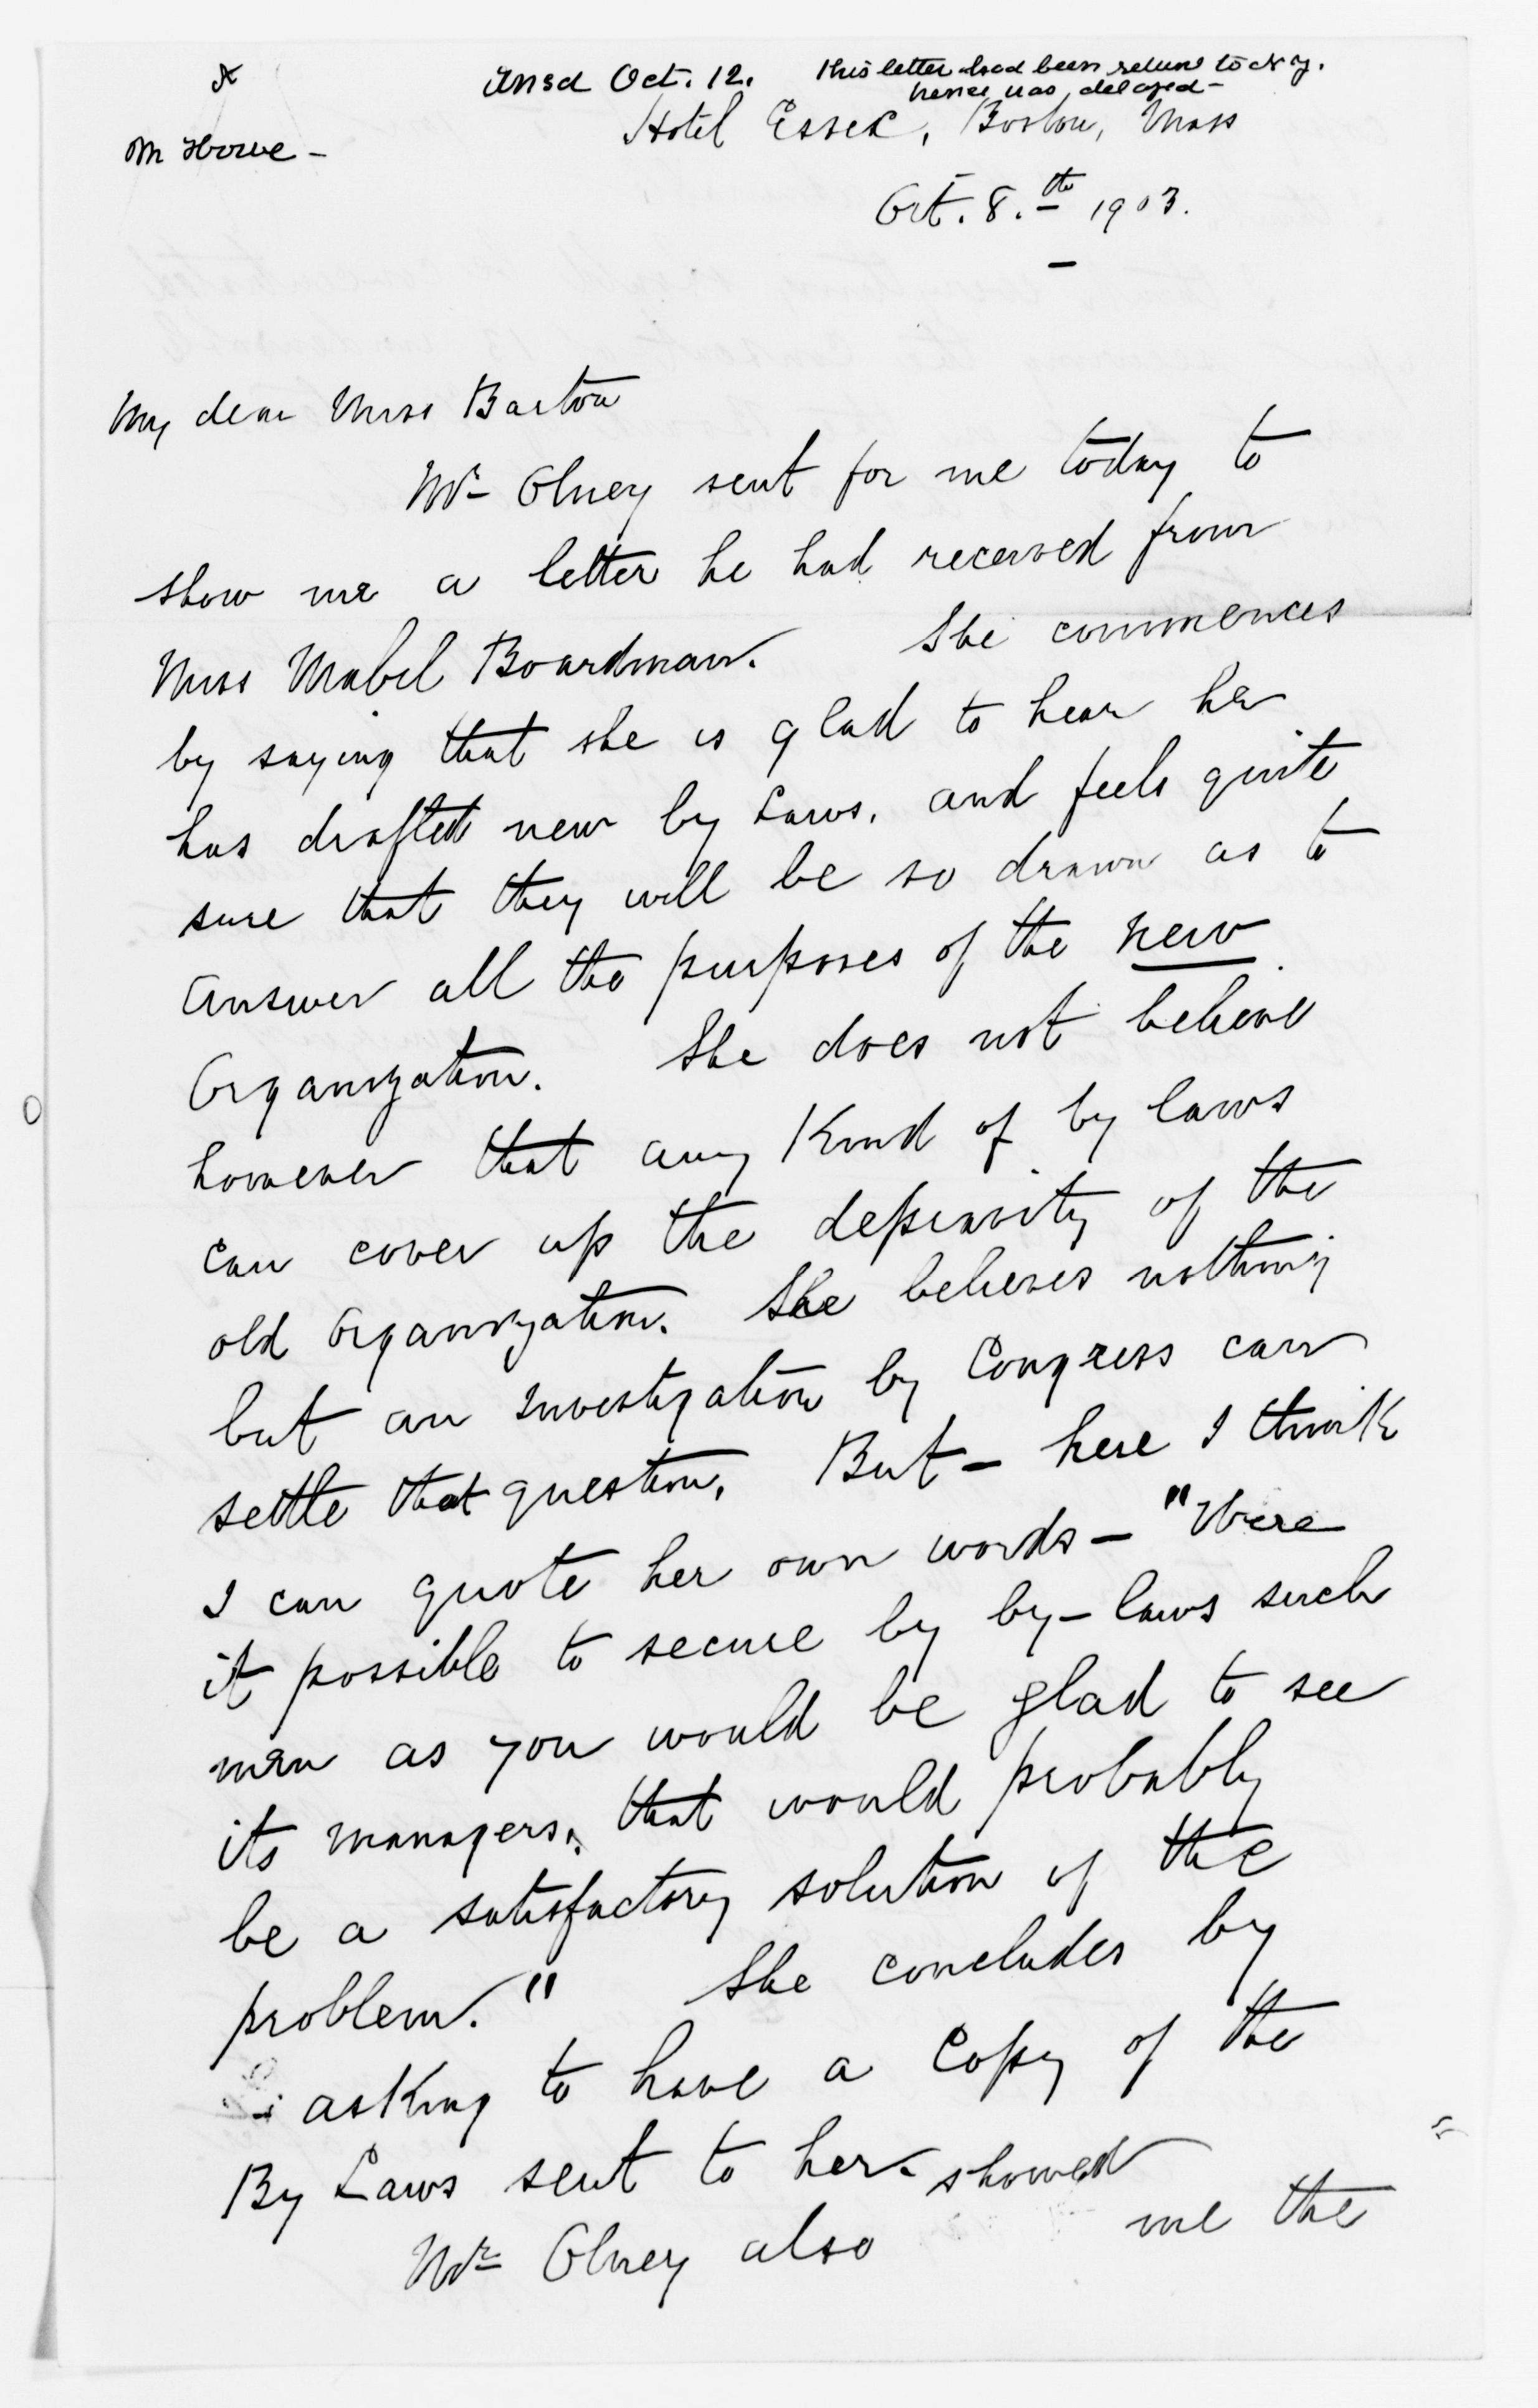 Ansd Oct. 12. This letter had been
hence was delayed -
M Howe -
Hotel Essex, Boston, Mass
Oct. 8.th 1903.
My dear Miss Barton
Mr Olney sent for me today to
show me a letter he had received from
Miss Mabel Boardman. She commences
by saying that she is glad to hear he
has drafted new by Laws, and feels quite
sure that they will be so drawn as to
answer all the purposes of the new
Organization. She does not believe
however that any Kind of by laws
can cover up the depravity of the
old Organization. She believes nothing
but an investigation by Congress can
settle that question. But - here I think
I can quote her own words - "Were
it possible to secure by by-laws such
men as you would be glad to see
its managers, that would probably
be a satisfactory solution of the
problem." She concludes by
asking to have a Copy of the
By Laws sent to her.
Mr Olney also showed me the